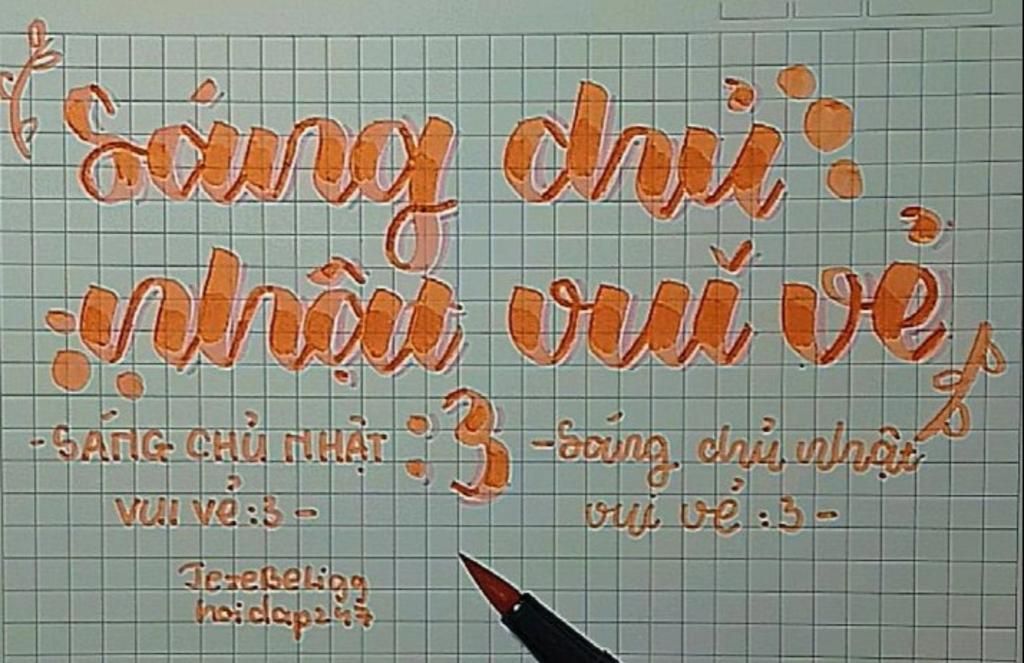 Sáng chủ
nhật vui vẻ
:3
- SÁNG CHỦ NHẬT
vui vẻ :3 -
- Sáng chủ nhật
vui vẻ :3 -
hoidap247